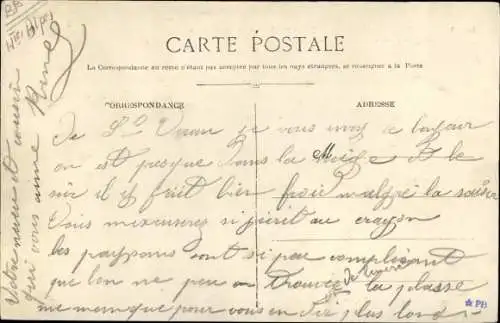 Htes Alpes
CARTE POSTALE
La Correspondance au recto n'étant pas acceptée par tous les pays étrangers, se renseigner à la Poste
CORRESPONDANCE
ADRESSE
De St Véran je vous envoy le bonjour
on est presque dans la Neige et le
soir il y fait bien froid malgré la saison
Vous mexcuserez si j'écrit au crayon
les paysans sont si peu complaisant
que lon ne peu en trouver
la plasse
me manque pour vous en dir plus long
Votre neveu et cousin
qui vous aime René
PB